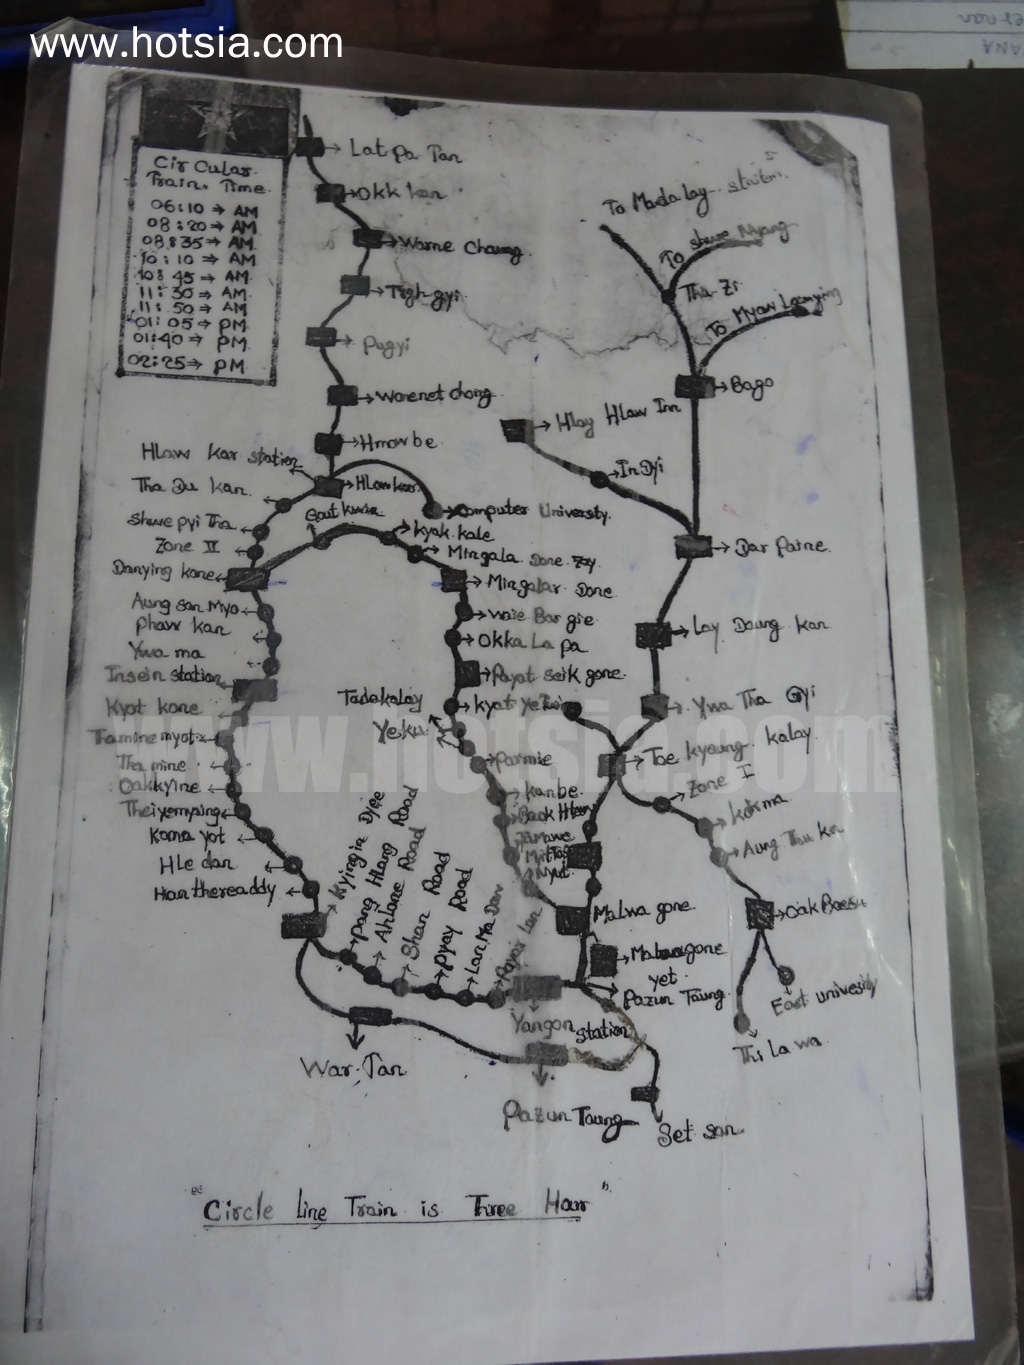 www.hotsia.com
Circular
Train. Time
06:10 → AM
08:20 → AM
08:35 → AM
10:10 → AM
10:45 → AM
11:30 → AM
11:50 → AM
01:05 → PM
01:40 → PM
02:25 → PM
Lat pa Tan
Okk kan
Warne Chaung
Tigh gyi
Pugyi
Warenet chong
Hmaw be
Hlaw kar station
Hlaw kar
Computer University.
Tha Du kan
Shwe pyi Tha
Zone II
Danying kone
kyak kale
Mingala Done Zay
Mingalar Done
Waie Bar gie
Okka La pa
Payat seik gone
kyat ye Twin
Tadakalay
Yeku
Parmie
kanbe
Aung san Myo
Phaw kan
Ywa ma
Insein station
Kyot kone
Tamine myot
Tha mine
Oakkyine
Theiyemyaing
Kama yot
Hle dan
Han thereaddy
Kyingin Dyee
Pang Hlang Road
Ahlone Road
Shan Road
Pyay Road
Lan Ma Daw
Payar Lan
Yangon station
War Tan
Pazun Taung
Set san
To Madalay station
To shwe Nyang
Tha Zi
To Myaw Lamying
Bago
Hlay Hlaw Inn
In Dyi
Dar Paine
Lay Daung kan
Ywa Tha Gyi
Toe kyaung kalay
Zone I
kokma
Aung Thu kn
Oak Baesu
East univesity
Thi la wa
Malwa gone
Malwagone
yet
Pazun Taung
"Circle Line Train is Three Hour"
www.hotsia.com